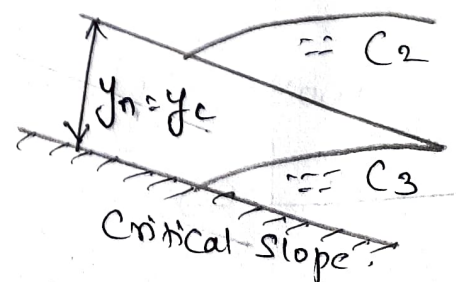 C2
yn = yc
C3
Critical Slope.